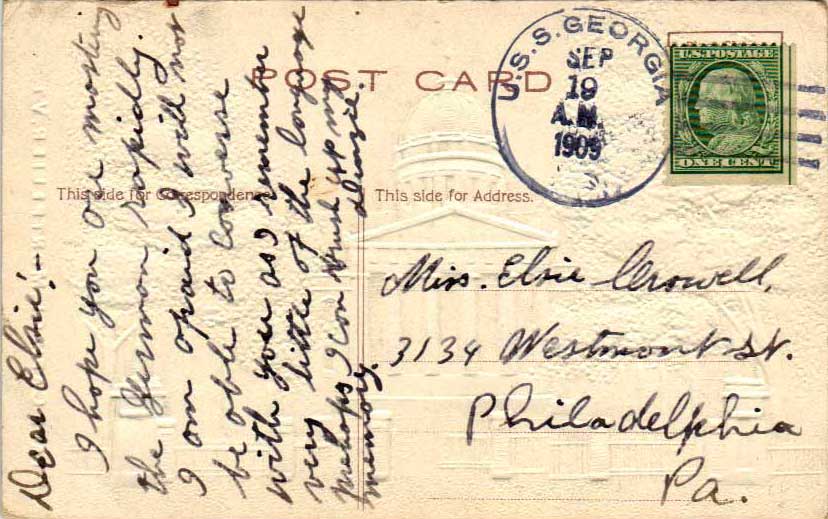 POST CARD
This side for Correspondence
This side for Address.
U.S.S. GEORGIA
SEP
19
A.M.
1909
U.S. POSTAGE
ONE CENT
Dear Elsie:-
I hope you are mastering
the German rapidly.
I am afraid I will not
be able to converse
with you as I remember
very little of the language
Perhaps I can brush up my
memory.
Miss. Elsie Crowell,
3134 Westmont St.
Philadelphia
Pa.